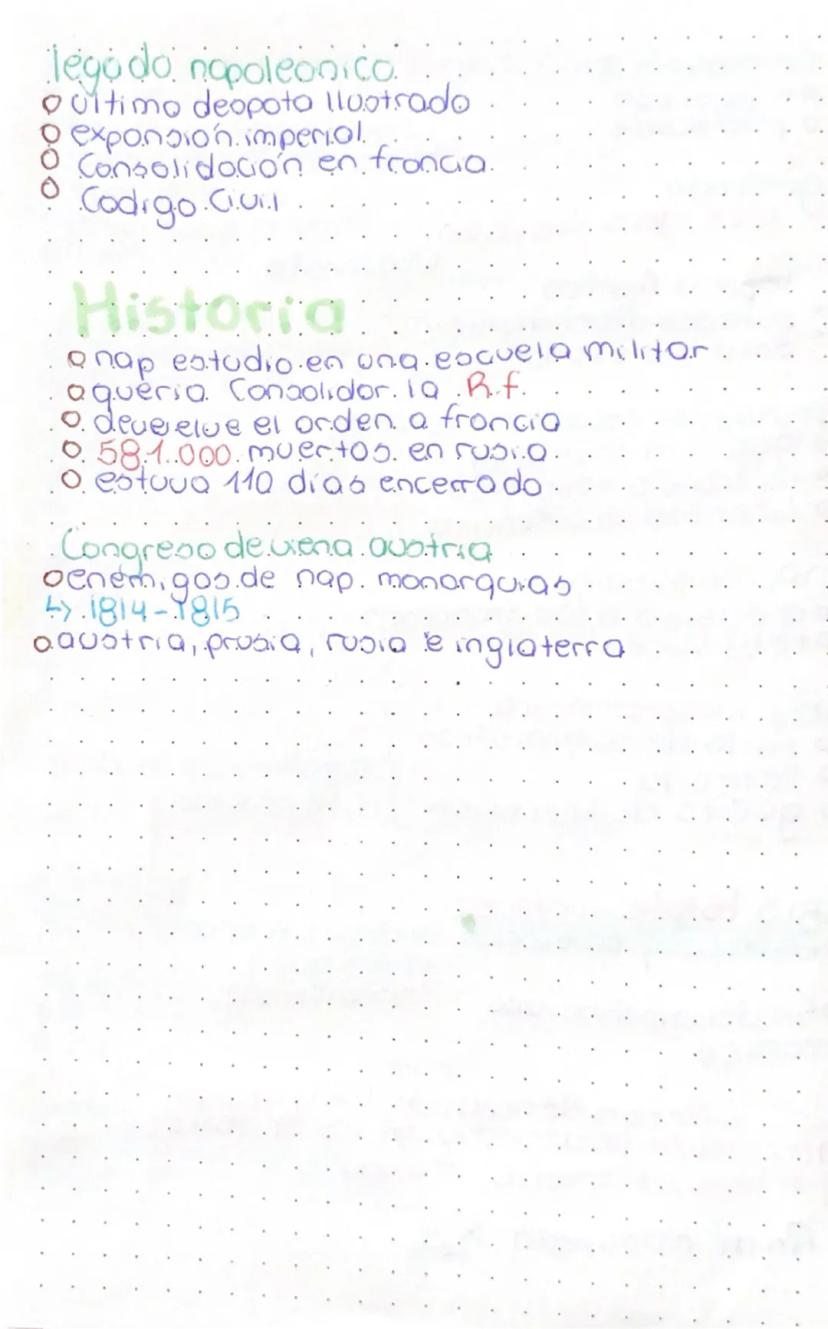 legado napoleonico.
o ultimo despota ilustrado
o expansión imperial.
o Consolidación en francia.
o Codigo Civil
Historia
o nap estudio en una escuela militar
o queria Consolidar la R.f.
o devuelve el orden a francia
o 581.000 muertos en rusia.
o estuvo 110 días encerrado
Congreso de viena austria
o enemigos de nap. monarquias
↳ 1814-1815
o austria, prusia, rusia e inglaterra